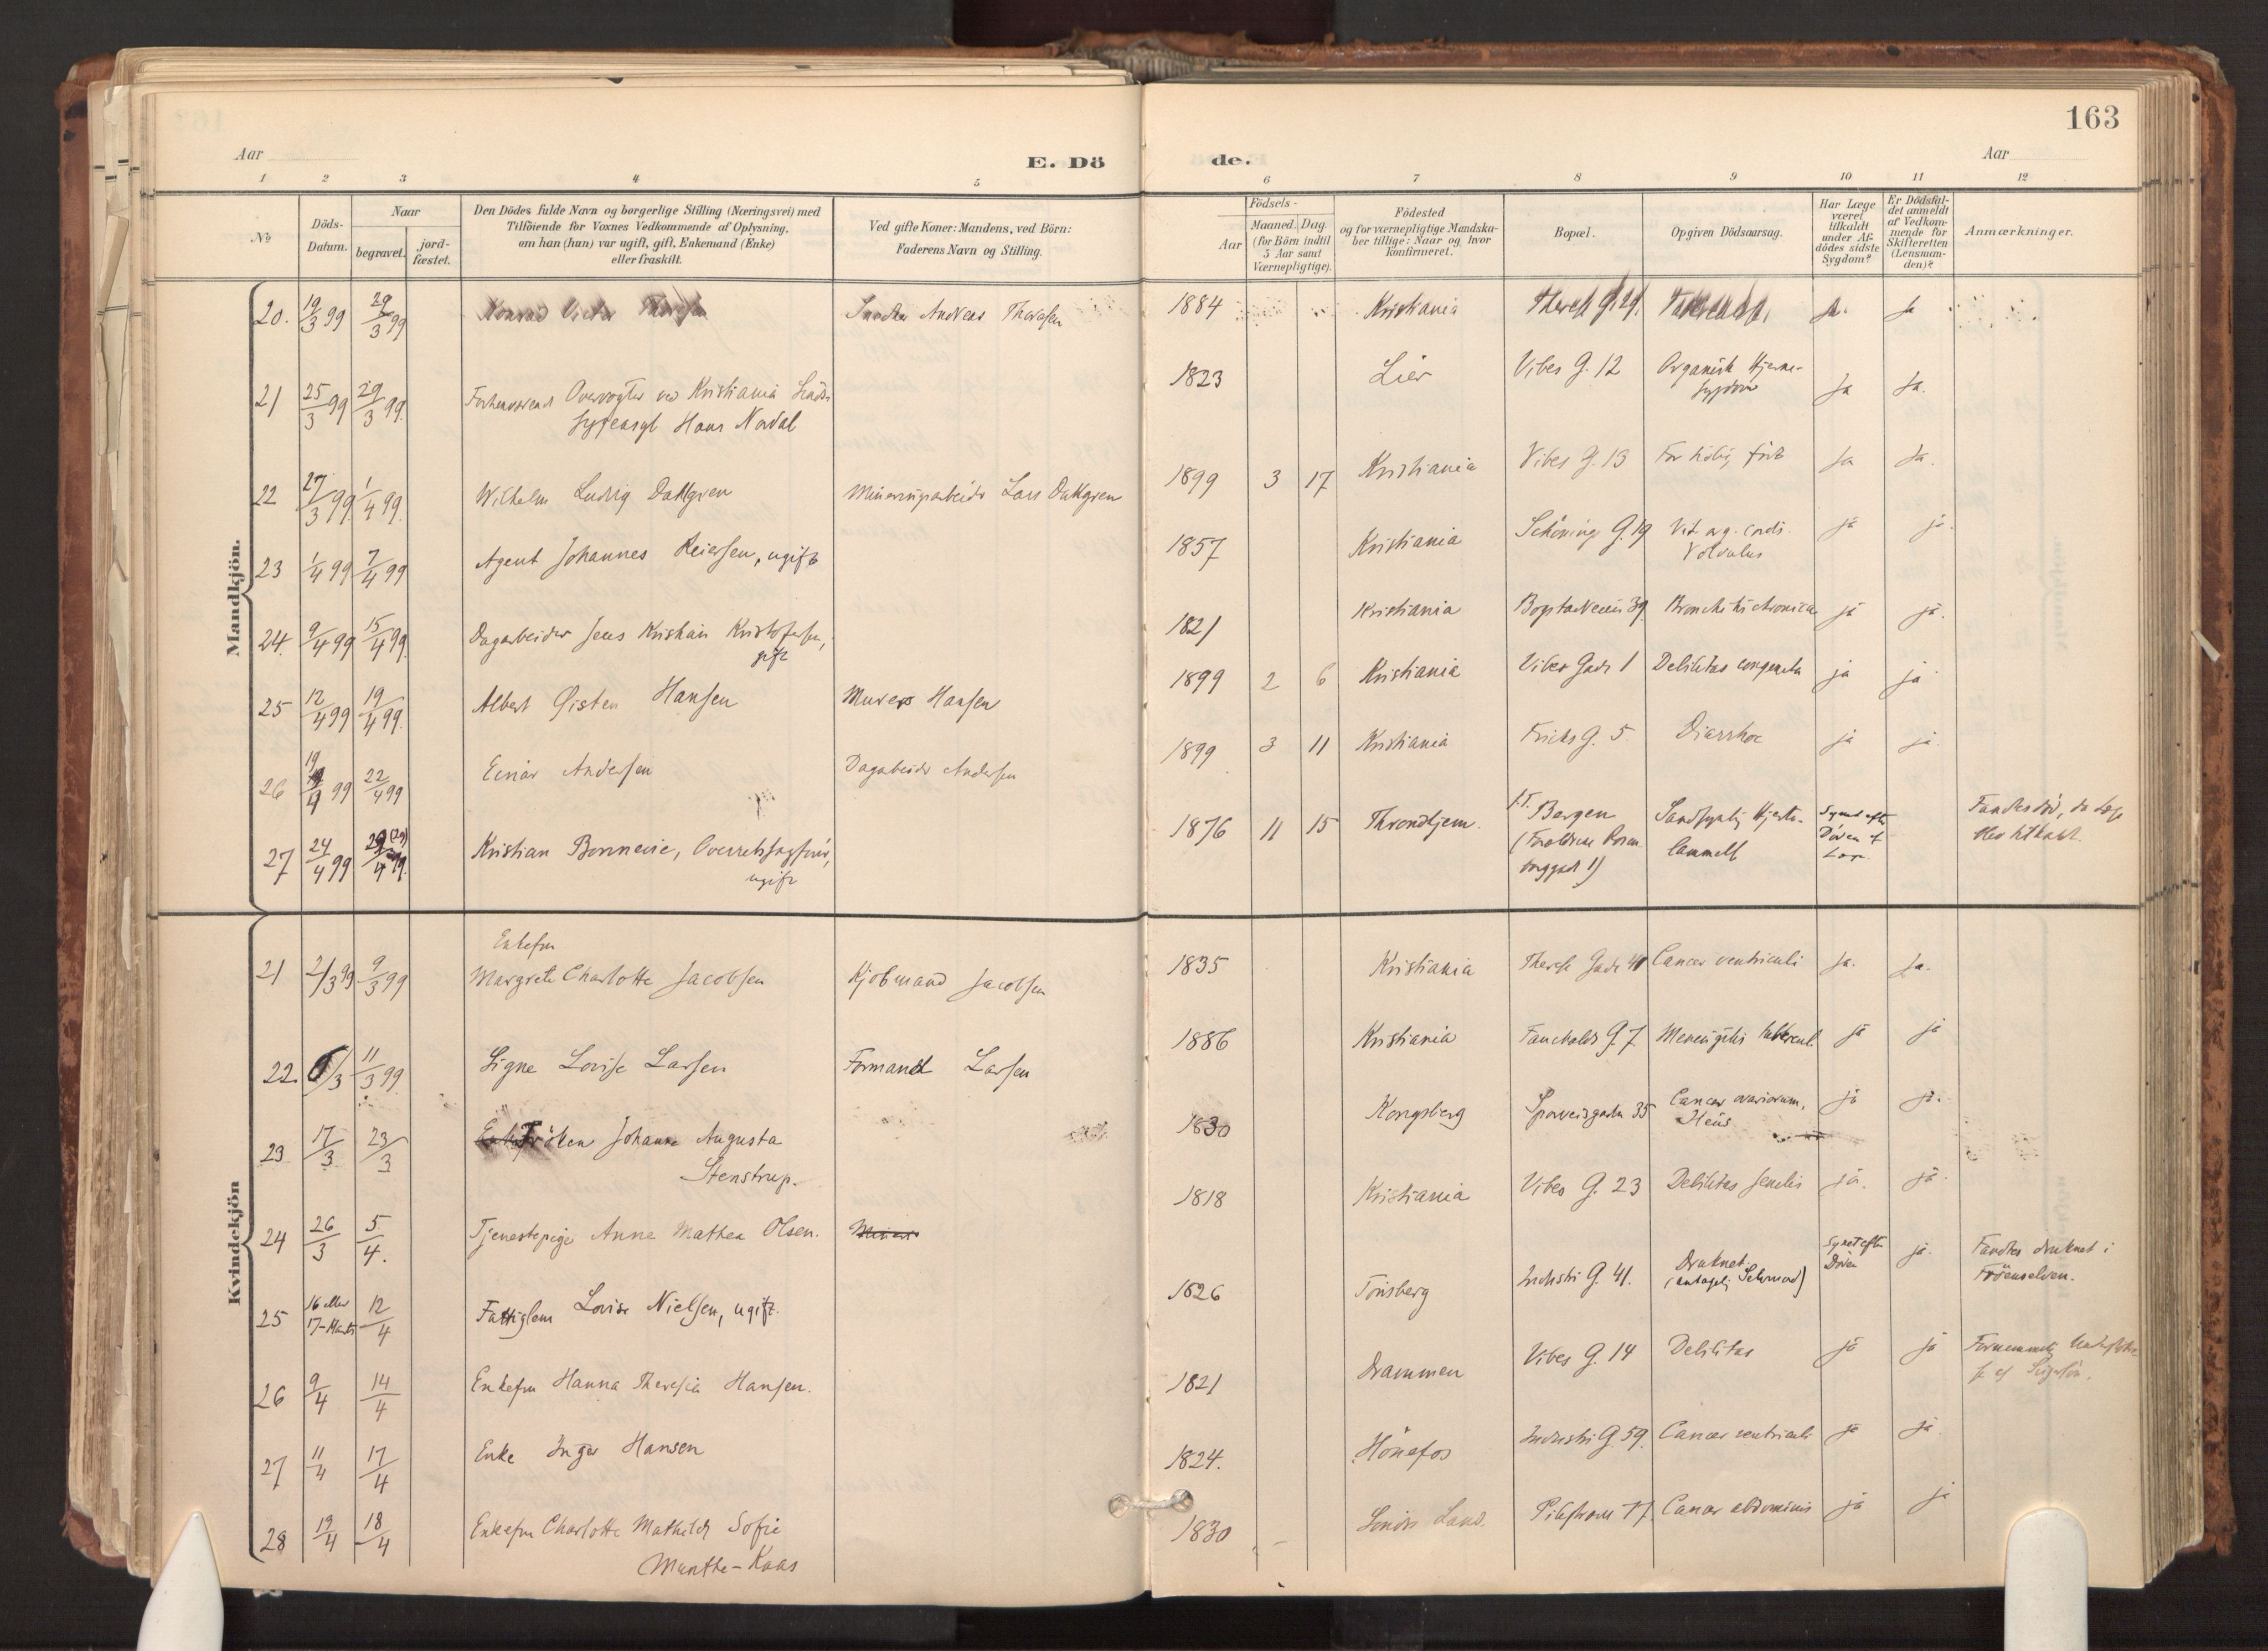 163
Aar
E. Dö
de.
Aar
1 2 3 4 5 6 7 8 9 10 11 12
No
Döds-Datum.
Naar
begravet.
jord-fæstet.
Den Dödes fulde Navn og borgerlige Stilling (Næringsvei) med
Tilföiende for Voxnes Vedkommende af Oplysning,
om han (hun) var ugift, gift, Enkemand (Enke)
eller fraskilt.
Ved gifte Koner: Mandens, ved Börn:
Faderens Navn og Stilling.
Födsels-
Aar
Maaned. Dag.
(for Börn indtil
5 Aar samt
Værnepligtige).
Födested
og for værnepligtige Mandska-
ber tillige: Naar og hvor
konfirmeret.
Bopæl.
Opgiven Dödsaarsag.
Har Læge
været
tilkaldt
under Af-
dödes sidste
Sygdom?
Er Dödsfal-
det anmeldt
af Vedkom-
mende for
Skifteretten
(Lensman-
den)?
Anmærkninger.
Mandkjön.
20. 19/3 99 29/3 99 Konrad Victor Thoresen Andreas Thoresen 1884 Kristiania Therese G. 29. Ja. Ja
21 25/3 99 29/3 99. Overvogter ved Kristiania
Hans Nordal 1823 Lier Vibes G. 12 Organisk Hjerne-
sygdom Ja Ja.
22 27/3 99 1/4 99. Wilhelm Ludvig Dahlgren Lars Dahlgren 1899 3 17 Kristiania Vibes G. 13 For tidlig född Ja Ja.
23 1/4 99 7/4 99 Agent Johannes Reiersen, ugift 1857 Kristiania Schönings G. 19 Vit. org. cordis.
Volvulus ja ja.
24. 9/4 99 15/4 99. Dagarbeider Jens Kristian Kristofersen,
gift 1821 Kristiania Bogstadveien 39. Bronchitis chronica ja ja.
25 12/4 99 19/4 99. Albert Øisten Hansen Murer Hansen 1899 2 6 Kristiania Vibes Gade 1 Debilitas congenita ja ja
26 19/4 99 22/4 99 Einar Andersen Dagarbeider Andersen 1899 3 11 Kristiania Fricks G. 5 Diarrhoe ja ja.
27 24/4 99 29/4 99. Kristian Bonnevie, Overretssagförer,
ugift 1876 11 15 Throndhjem. f.T. Bergen
(Forældrene Rosen
borggade 1) Sandsynlig Hjerte-
lammelse Synet efter
Döden af
Læge. Fandtes död, da Læge
blev tilkaldt.
Kvindekjön
21 2/3 99 9/3 99 Enkefru
Margrete Charlotte Jacobsen Kjöbmand Jacobsen 1835 Kristiania Therese Gade 41 Cancer ventriculi Ja. Ja.
22. 6/3 11/3 99. Signe Lovise Larsen Formand Larsen 1886 Kristiania Fauchalds G. 7. Meningitis tubercul. ja ja
23 17/3 23/3 Fröken Johanne Augusta
Stenstrup. 1830 Kongsberg Sporveisgaden 35 Cancer ovariorum,
Ileus ja ja.
24 26/3 5/4. Tjenestepige Anne Mathea Olsen. 1818 Kristiania Vibes G. 23 Debilitas senilis ja. ja.
25 16 eller
17-Marts 12/4 Fattiglem Lovise Nielsen, ugift. 1826 Tönsberg Industri G. 41. Druknet.
(antagelig Selvmord) Synet efter
Döden ja. Fandtes druknet i
Fröenselven.
26 9/4 14/4 Enkefru Hanna Theresia Hansen. 1821 Drammen Vibes G. 14 Debilitas ja ja
27 11/4 17/4 Enke Inger Hansen 1824. Hönefos Industri G. 59. Cancer ventriculi ja ja.
28 12/4 18/4 Enkefru Charlotte Mathilde Sofie
Munthe-Kaas 1830 Söndre Land. Pilestrædet Cancer abdominis ja ja